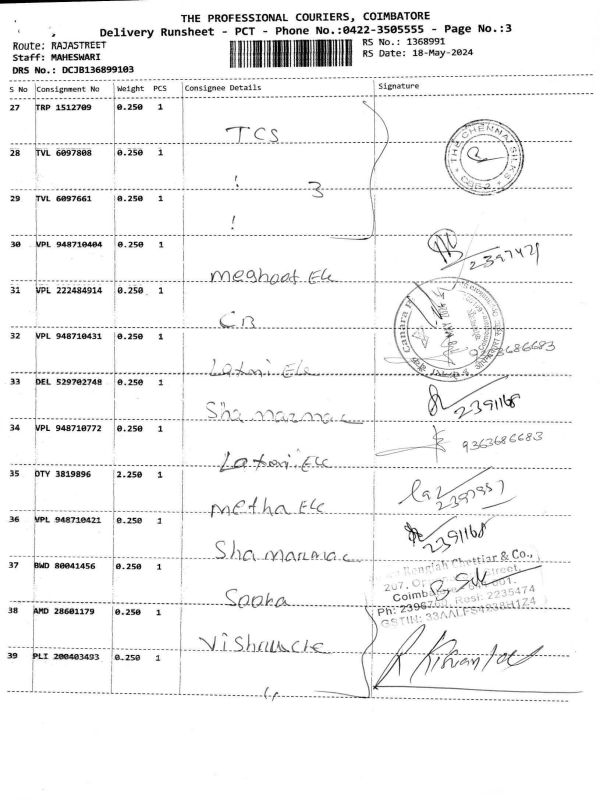 THE PROFESSIONAL COURIERS, COIMBATORE
Delivery Runsheet - PCT - Phone No.:0422-3505555 - Page No.:3
Route: RAJASTREET
RS No.: 1368991
Staff: MAHESWARI
RS Date: 18-May-2024
DRS No.: DCJB136899103
S No Consignment No Weight PCS Consignee Details Signature
27 TRP 1512709 0.250 1
TCS
THE CHENNAI SILKS
28 TVL 6097808 0.250 1
3
29 TVL 6097661 0.250 1
30 VPL 948710404 0.250 1
2397421
meghoot Ele
31 VPL 222484914 0.250 1
CB
Canara
32 VPL 948710431 0.250 1
9363686683
Laxmi Ele
33 DEL 529702748 0.250 1
2391168
34 VPL 948710772 0.250 1
9363686683
Laxmi Ele
35 DTY 3819896 2.250 1
metha Ele
36 VPL 948710421 0.250 1
2391168
Chettiar & Co.,
37 BWD 80041456 0.250 1
Street,
207,
Sobha
Resi: 2235474
38 AMD 28601179 0.250 1
39 PLI 200403493 0.250 1